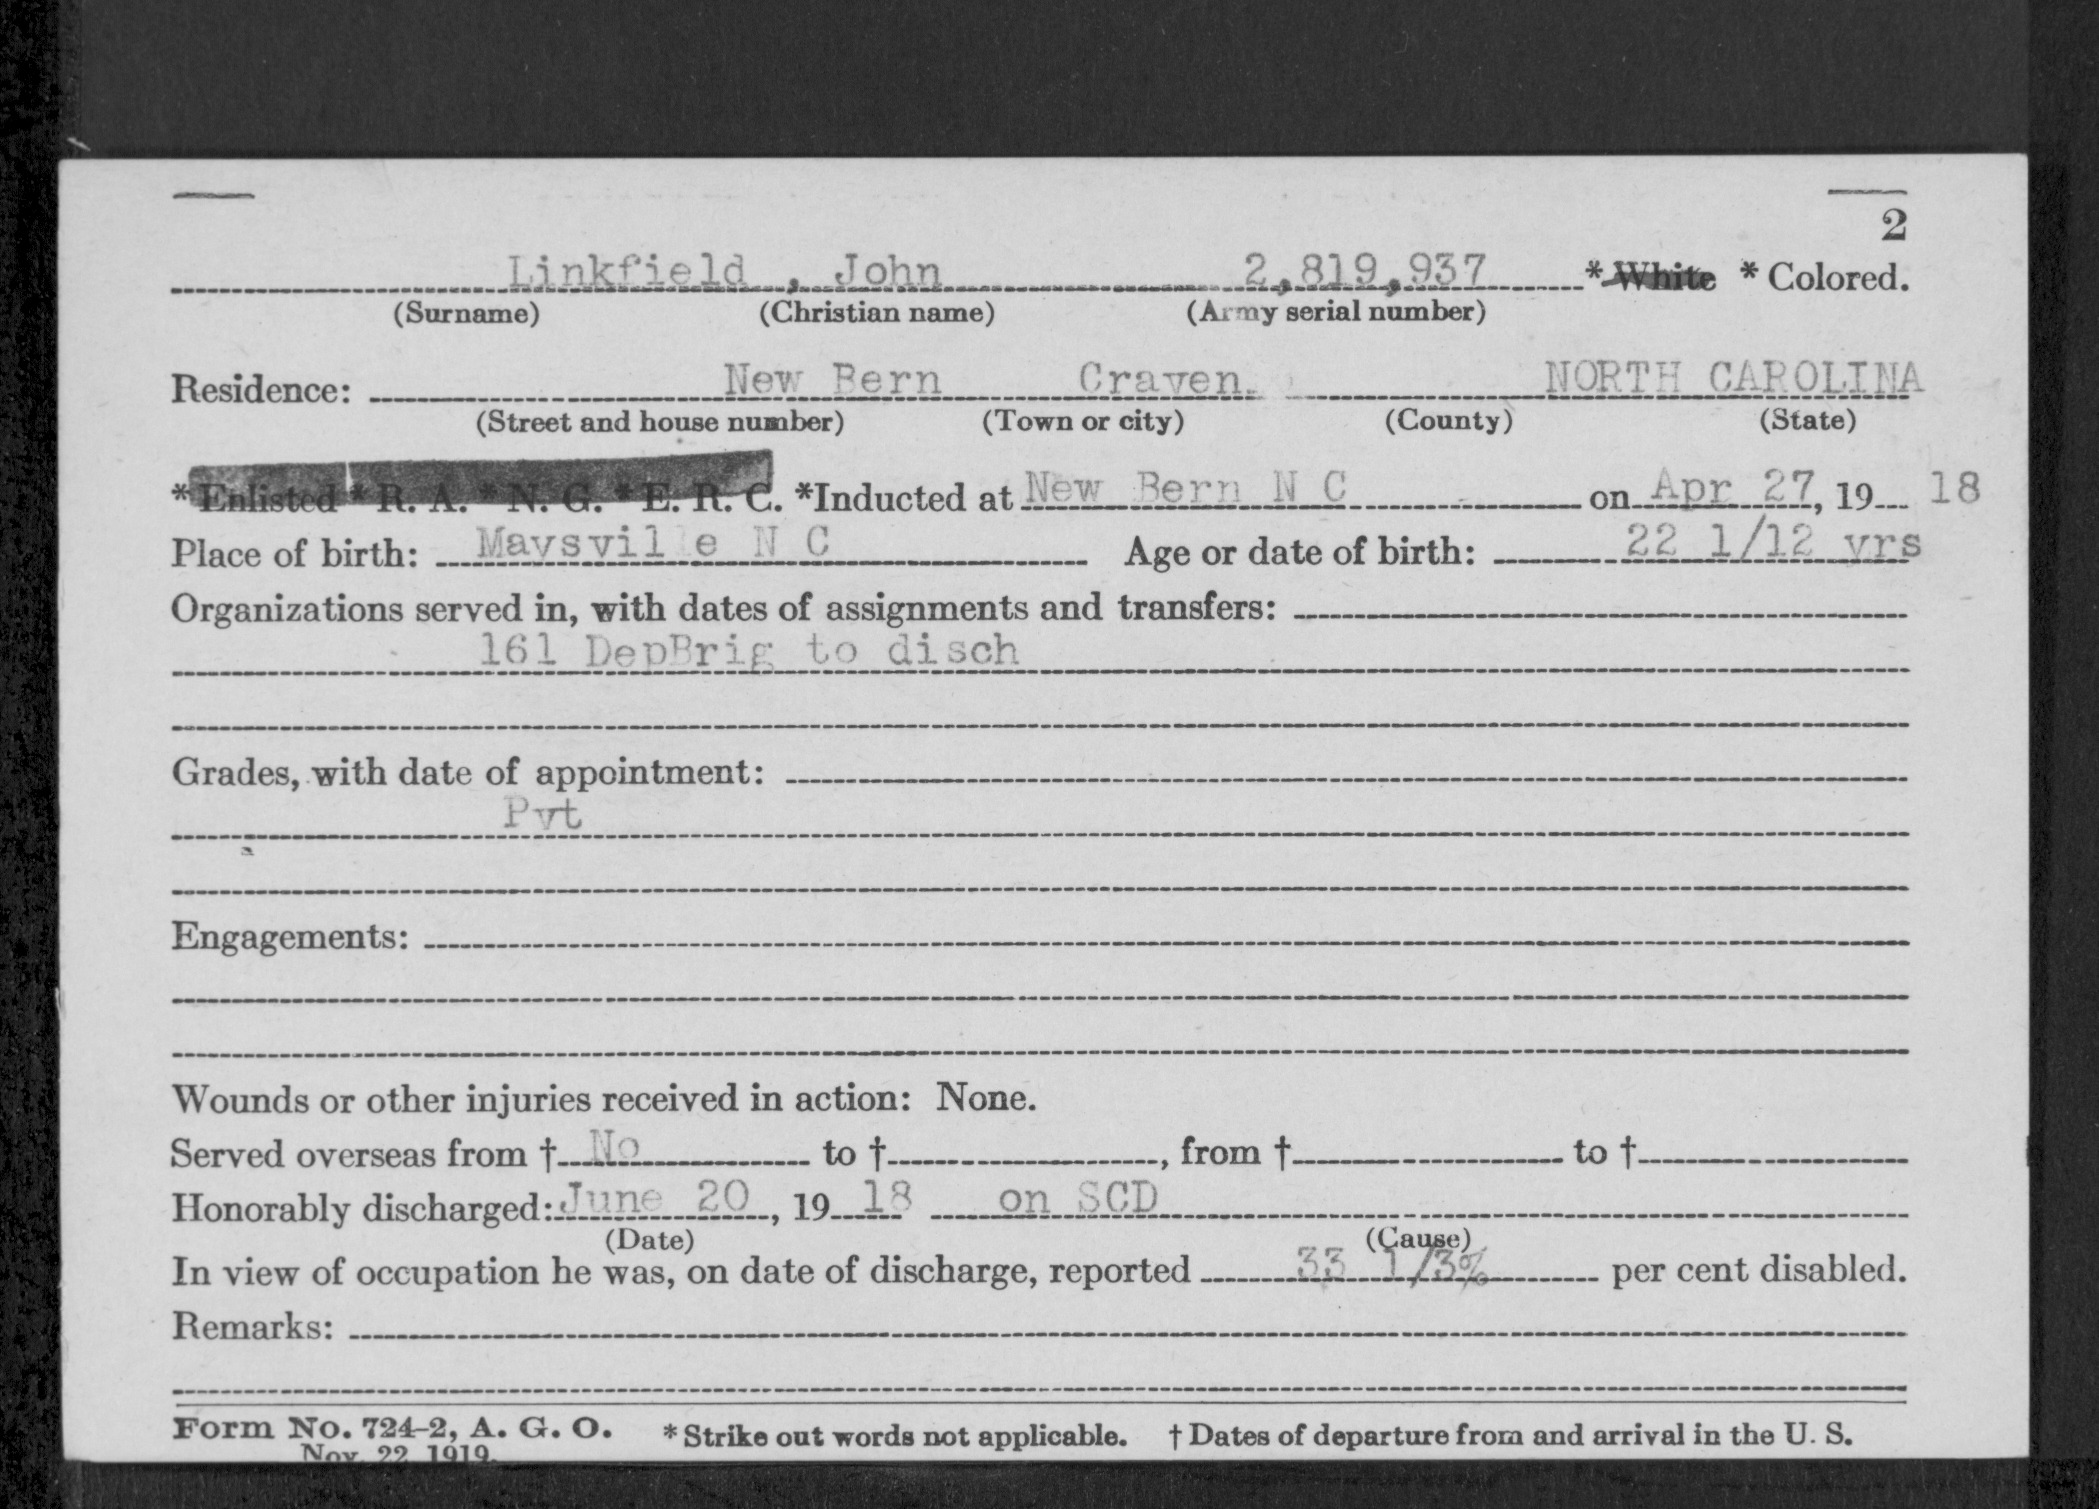 2
Linkfield , John 2,819,937 * White * Colored.
(Surname) (Christian name) (Army serial number)
Residence: New Bern Craven. NORTH CAROLINA
(Street and house number) (Town or city) (County) (State)
* Enlisted * R. A. * N. G. * E. R. C. *Inducted at New Bern N C on Apr 27, 19 18
Place of birth: Maysville N C Age or date of birth: 22 1/12 yrs
Organizations served in, with dates of assignments and transfers:
161 DepBrig to disch
Grades, with date of appointment:
Pvt
Engagements:
Wounds or other injuries received in action: None.
Served overseas from † No to † , from † to †
Honorably discharged: June 20, 19 18 on SCD
(Date) (Cause)
In view of occupation he was, on date of discharge, reported 33 1/3% per cent disabled.
Remarks:
Form No. 724-2, A. G. O. * Strike out words not applicable. † Dates of departure from and arrival in the U. S.
Nov. 22 1919.